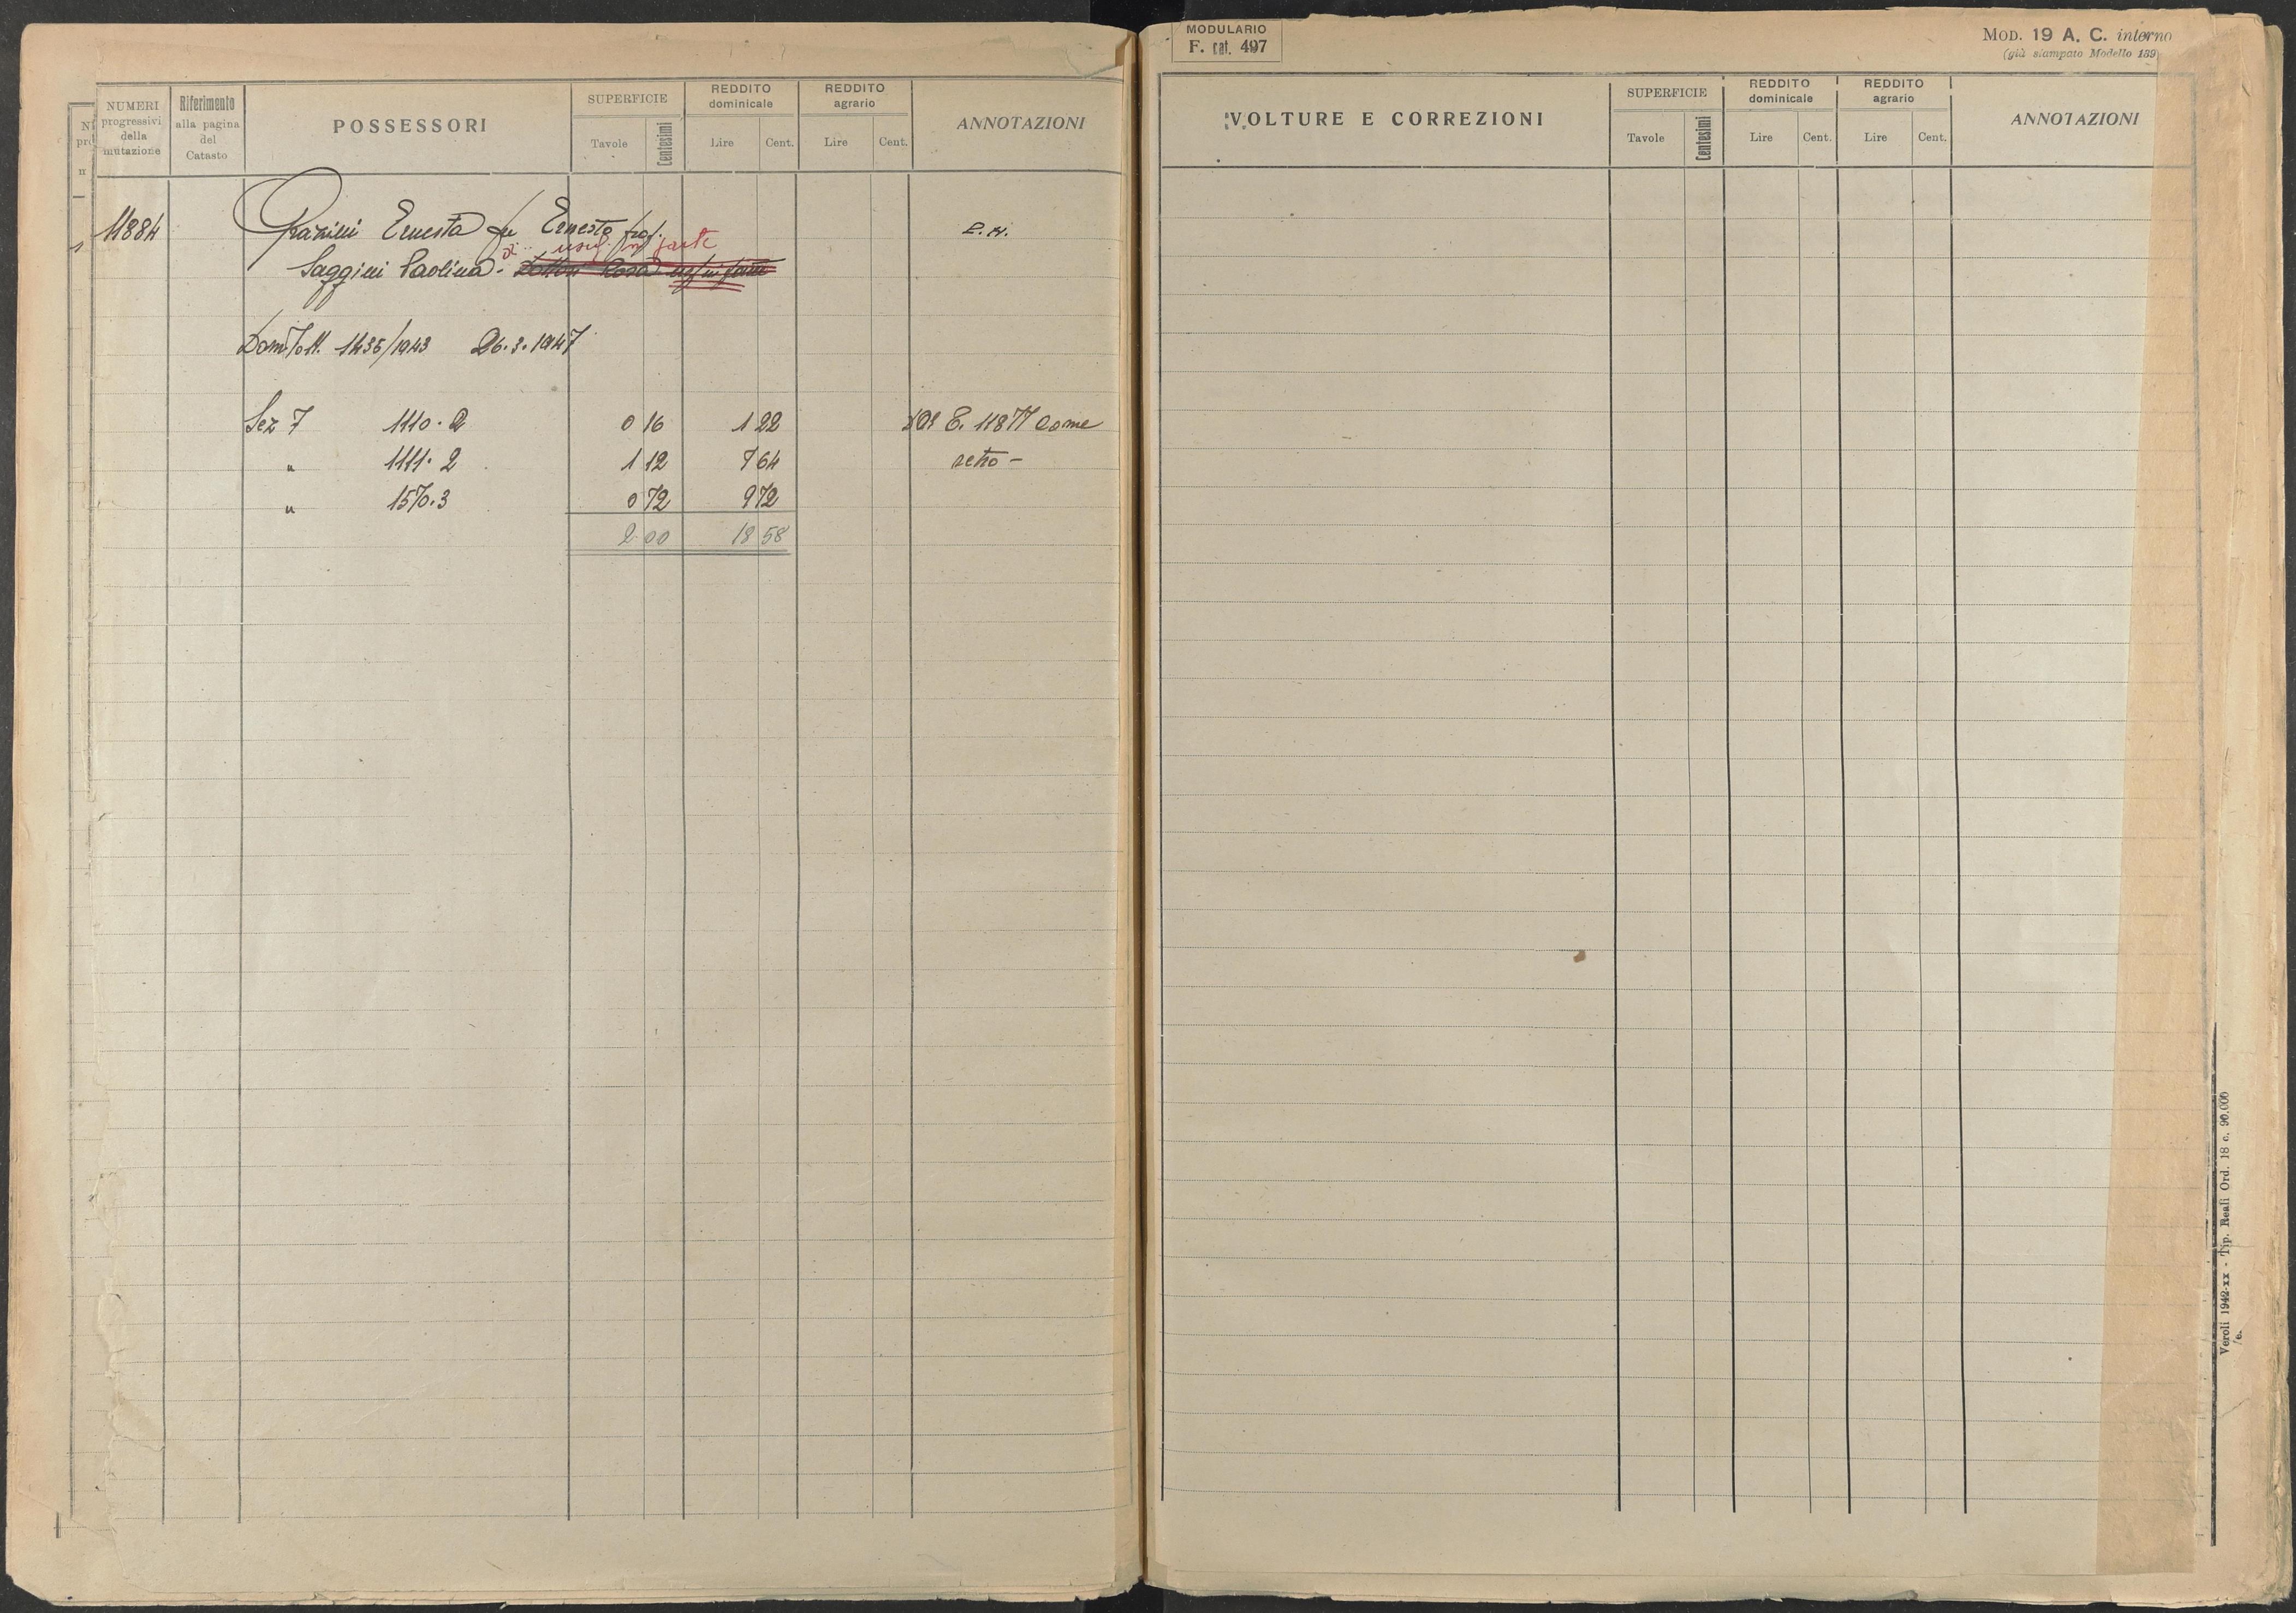 NUMERI progressivi della mutazione
Riferimento alla pagina del Catasto
POSSESSORI
SUPERFICIE
Tavole
Centesimi
REDDITO dominicale
Lire
Cent.
REDDITO agrario
Lire
Cent.
ANNOTAZIONI
11884
Ernesta fu Ernesto prop. E.U.
usuf. in parte
Saggini Paolina Rosa usuf in parte
1435/1943 26.3.1947
Sez 7 1110.2 0 16 1 22 Dal E. 11877 come
" 1111.2 1 12 7 64 retro -
" 1570.3 0 72 9 72
2 00 18 58
MODULARIO
F. cat. 497
MOD. 19 A. C. interno
(già stampato Modello 139)
VOLTURE E CORREZIONI
SUPERFICIE
Tavole
Centesimi
REDDITO dominicale
Lire
Cent.
REDDITO agrario
Lire
Cent.
ANNOTAZIONI
Veroli 1942-XX - Tip. Reali Ord. 18 c. 90.000